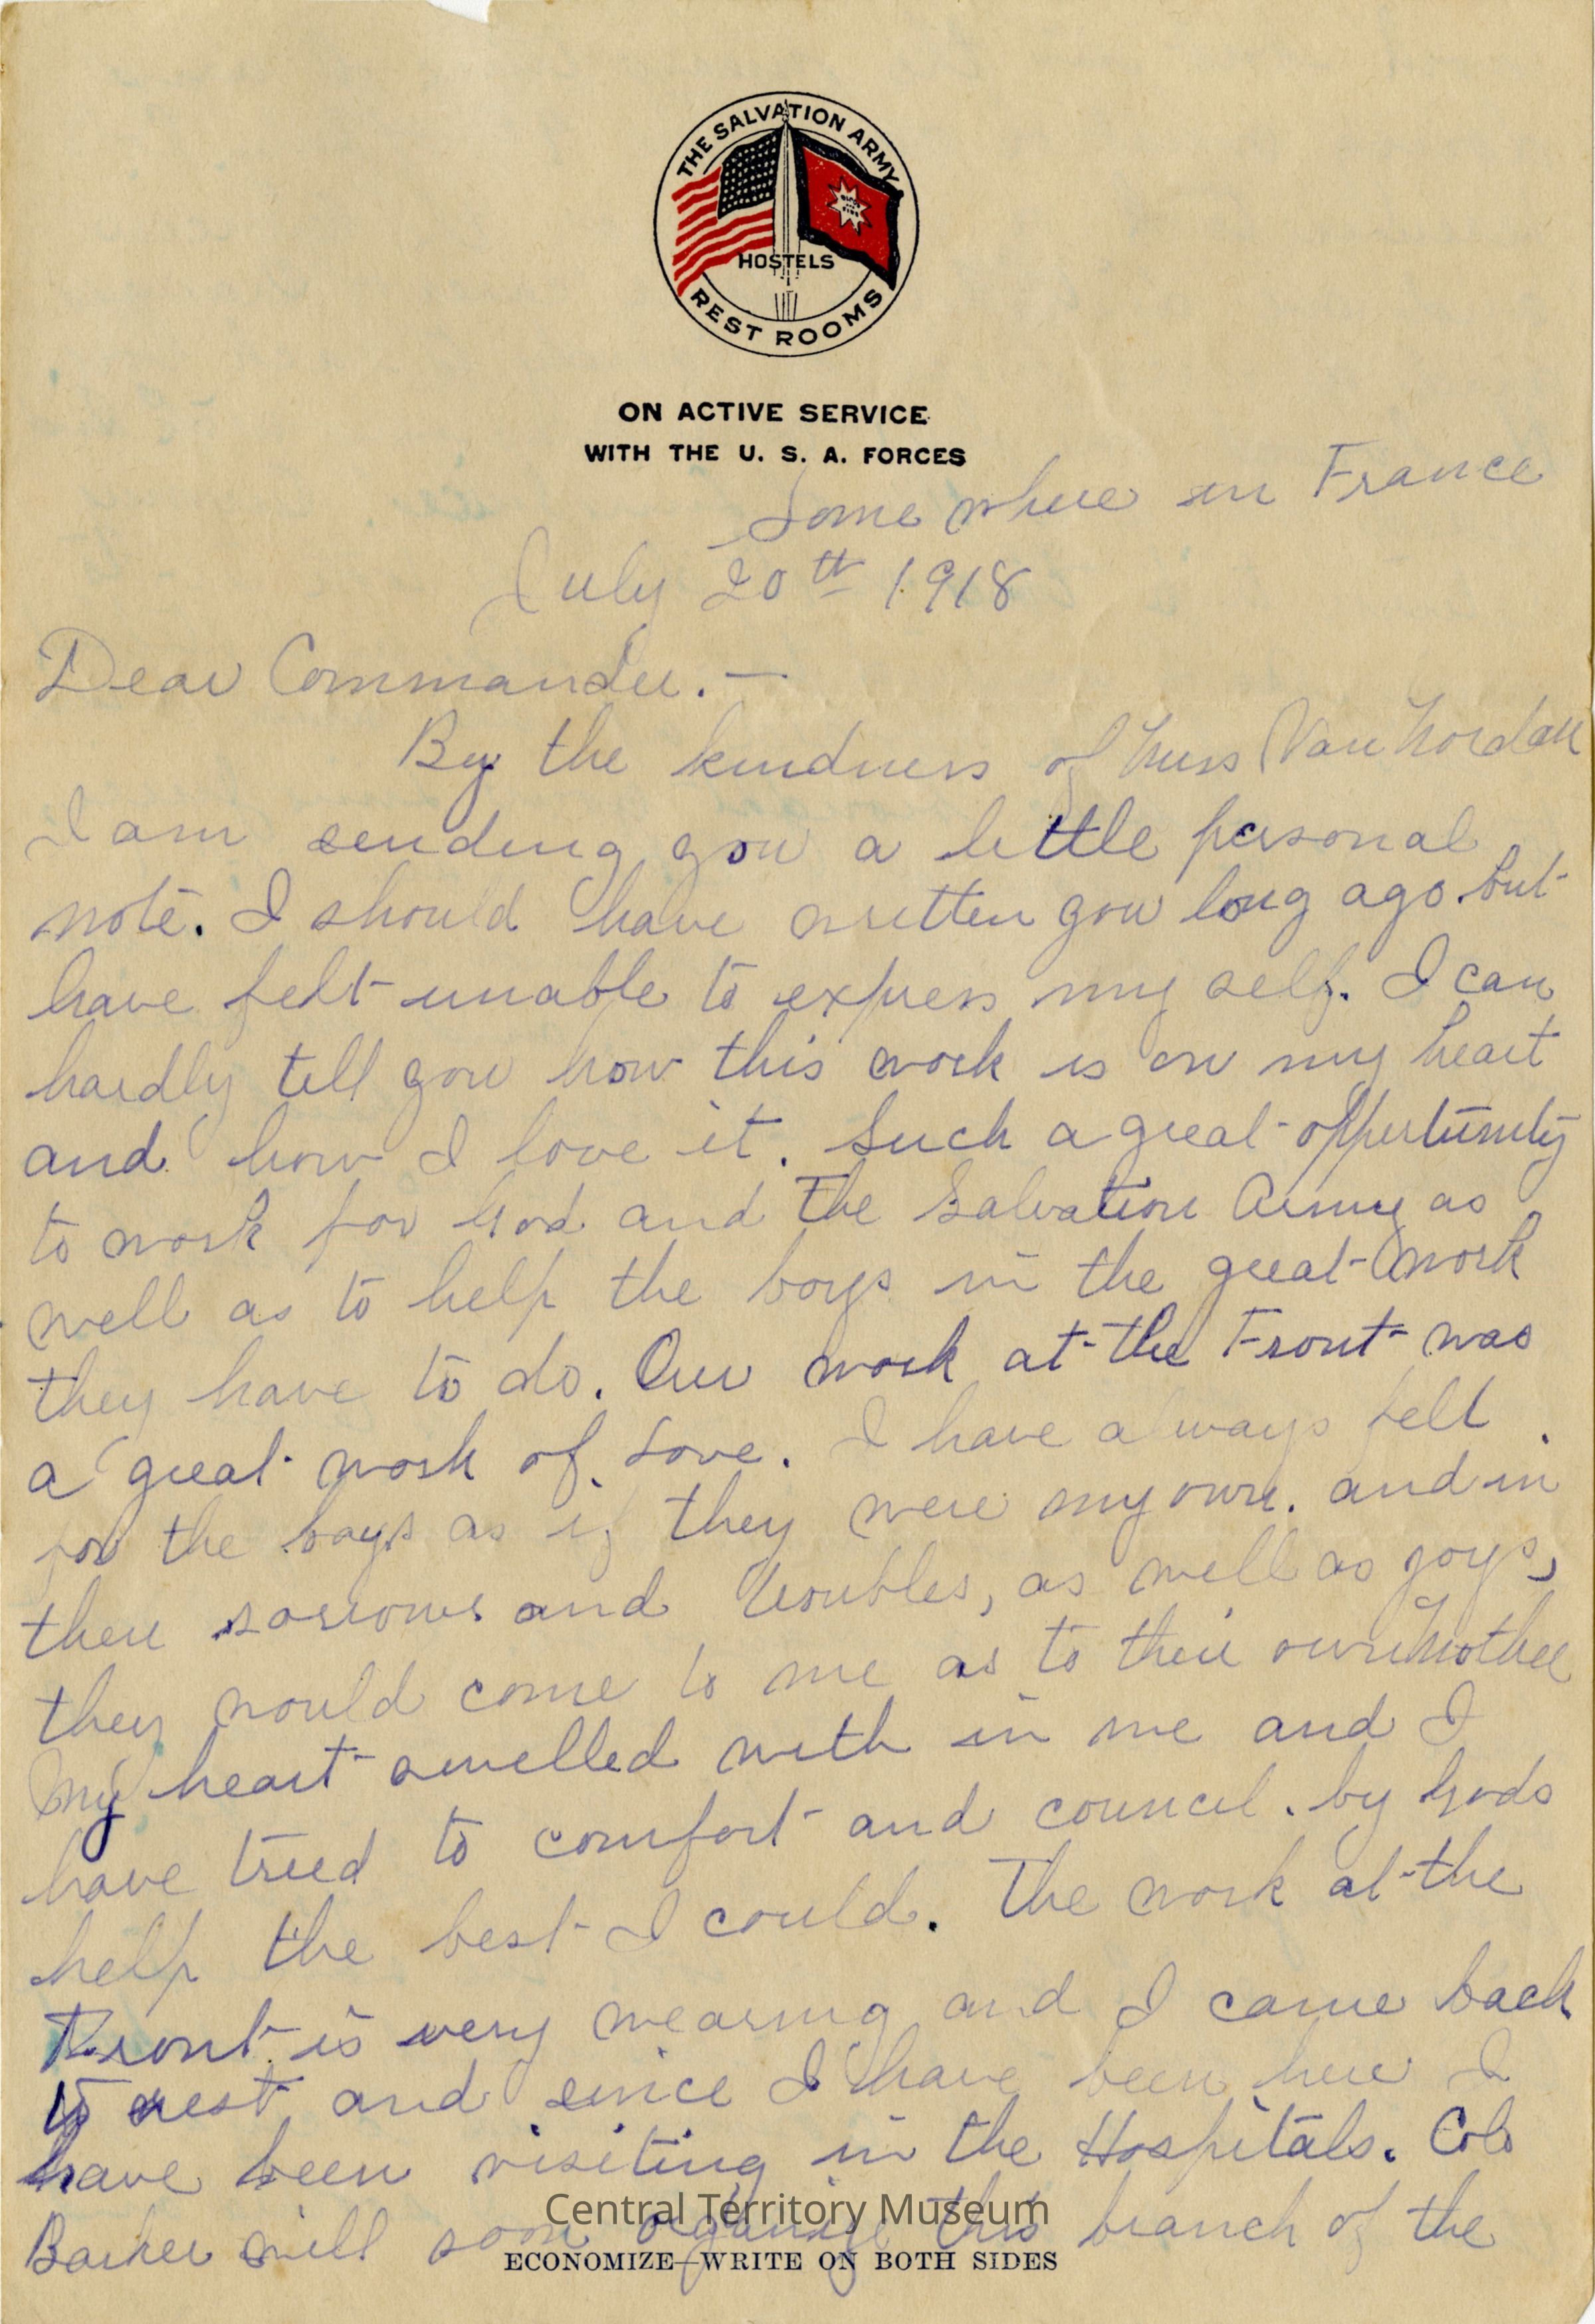 THE SALVATION ARMY
HOSTELS
REST ROOMS
ON ACTIVE SERVICE
WITH THE U. S. A. FORCES
Some where in France
July 20th 1918
Dear Commander. —
By the kindness of Miss Van Norden
I am sending you a little personal
note. I should have written you long ago. but
have felt unable to express my self. I can
hardly tell you how this work is on my heart
and how I love it. Such a great oppertunity
to work for God and The Salvation Army as
well as to help the boys in the great work
they have to do. Our work at the Front was
a great work of Love. I have always felt
for the boys as if they were my own. and in
their sorrows and troubles, as well as joys,
they would come to me as to their own Mother
My heart swelled with in me and I
have tried to comfort and council. by Gods
help the best I could. The work at the
Front is very wearing and I came back
to rest and since I have been here I
have been visiting in the Hospitals. Col.
Barker will soon organize this branch of the
Central Territory Museum
ECONOMIZE—WRITE ON BOTH SIDES